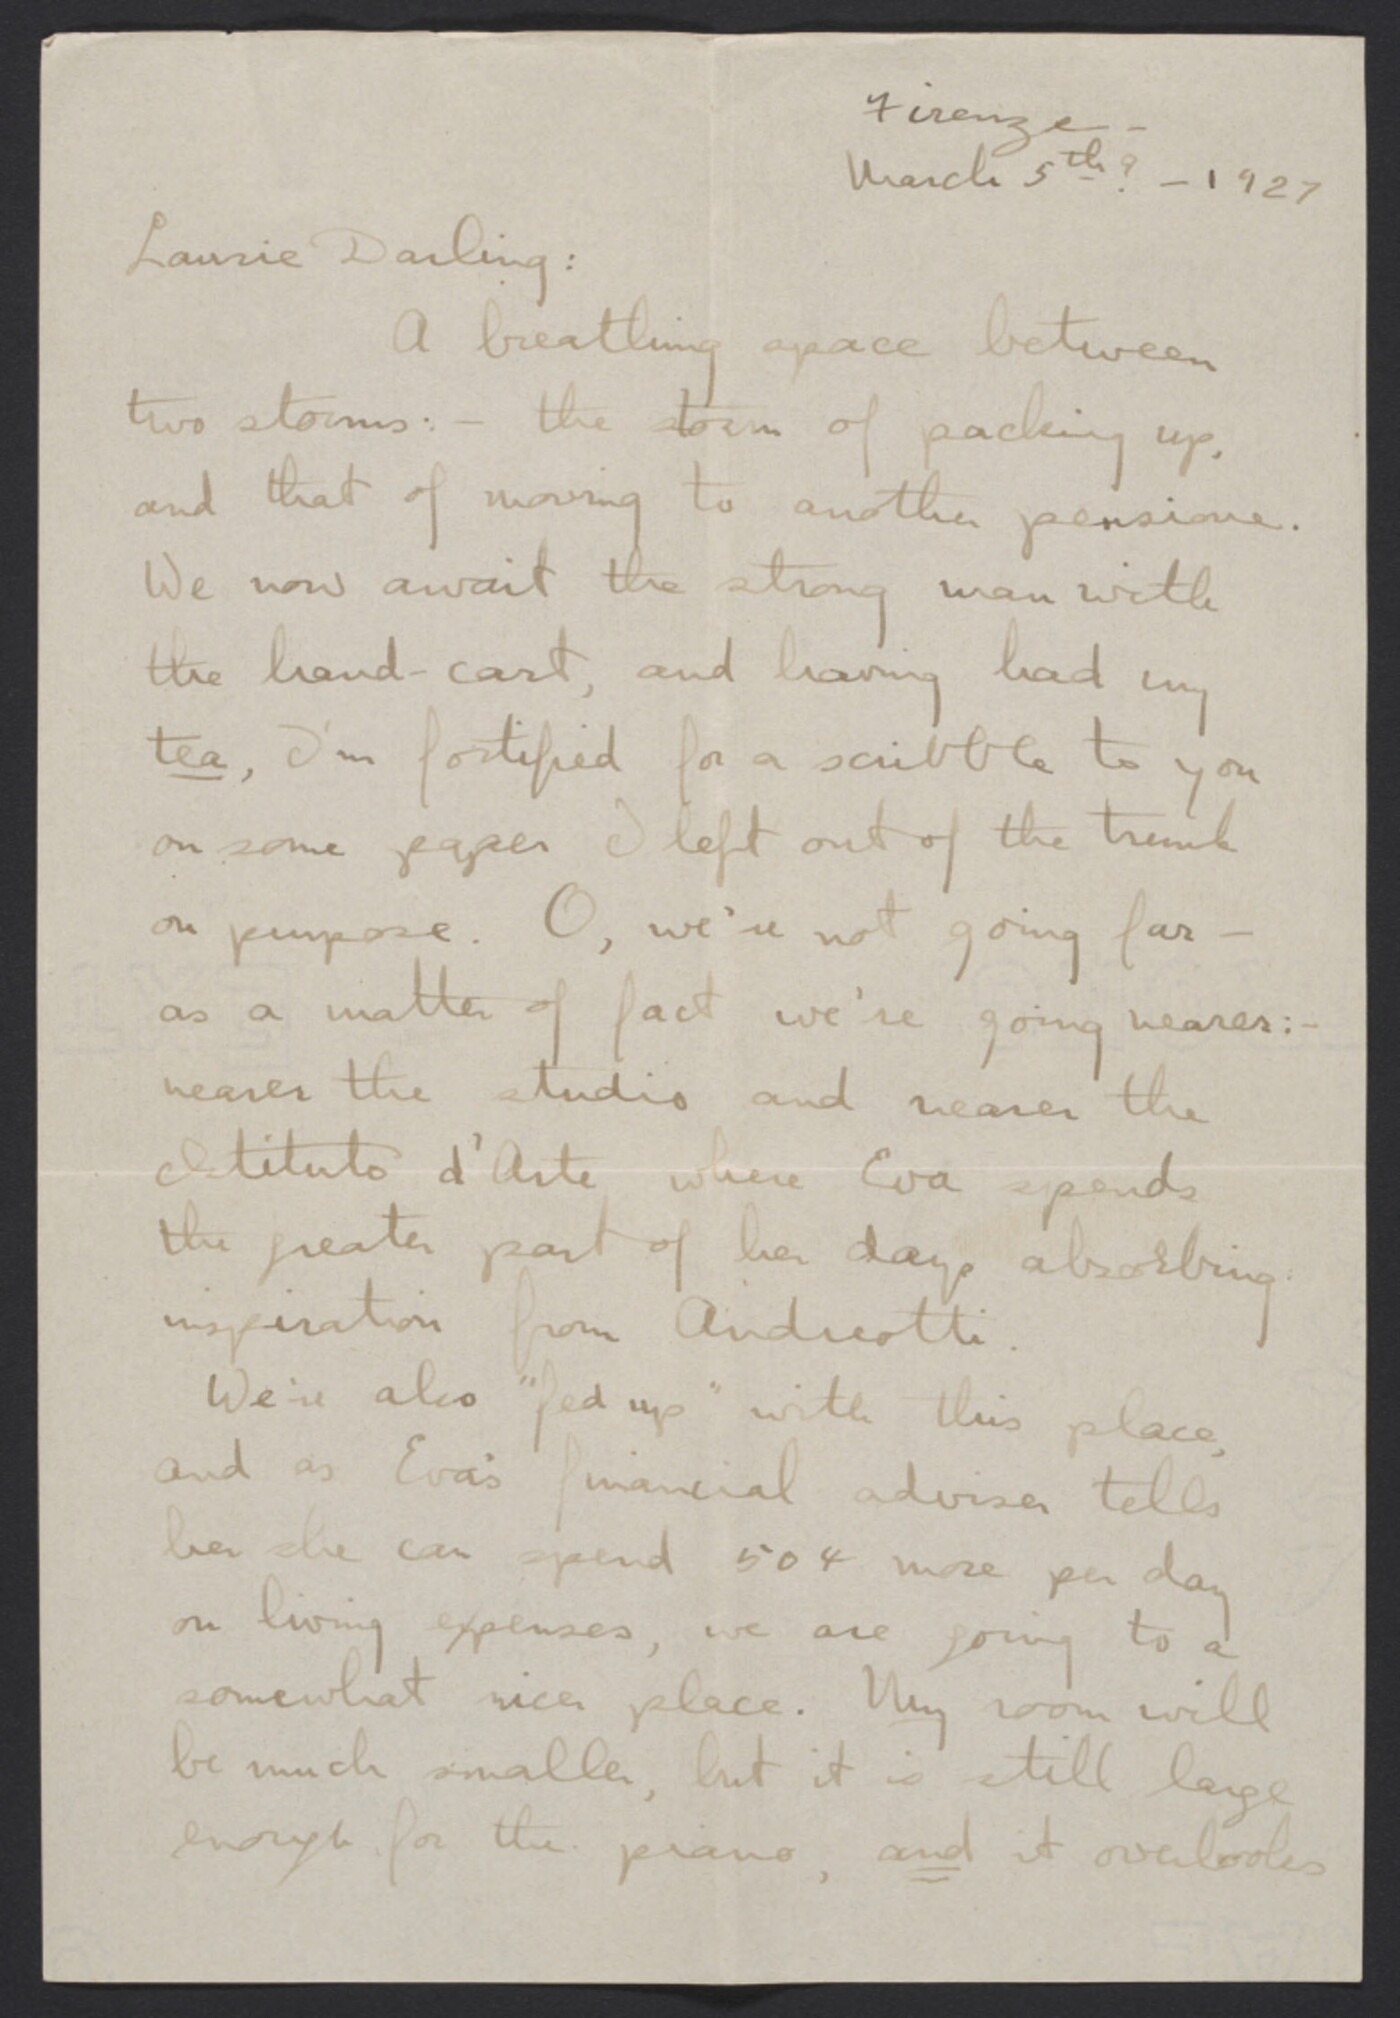 Firenze -
March 5th? - 1927
Laurie Darling:
A breathing space between
two storms: - the storm of packing up,
and that of moving to another pensione.
We now await the strong man with
the hand-cart, and having had my
tea, I'm fortified for a scribble to you
on some paper I left out of the trunk
on purpose. O, we're not going far -
as a matter of fact we're going nearer: -
nearer the studio and nearer the
Istituto d'Arte where Eva spends
the greater part of her days absorbing
inspiration from Andreotti.
We're also "fed up" with this place,
and as Eva's financial adviser tells
her she can spend 50¢ more per day
on living expenses, we are going to a
somewhat nicer place. My room will
be much smaller, but it is still large
enough for the piano, and it overlooks